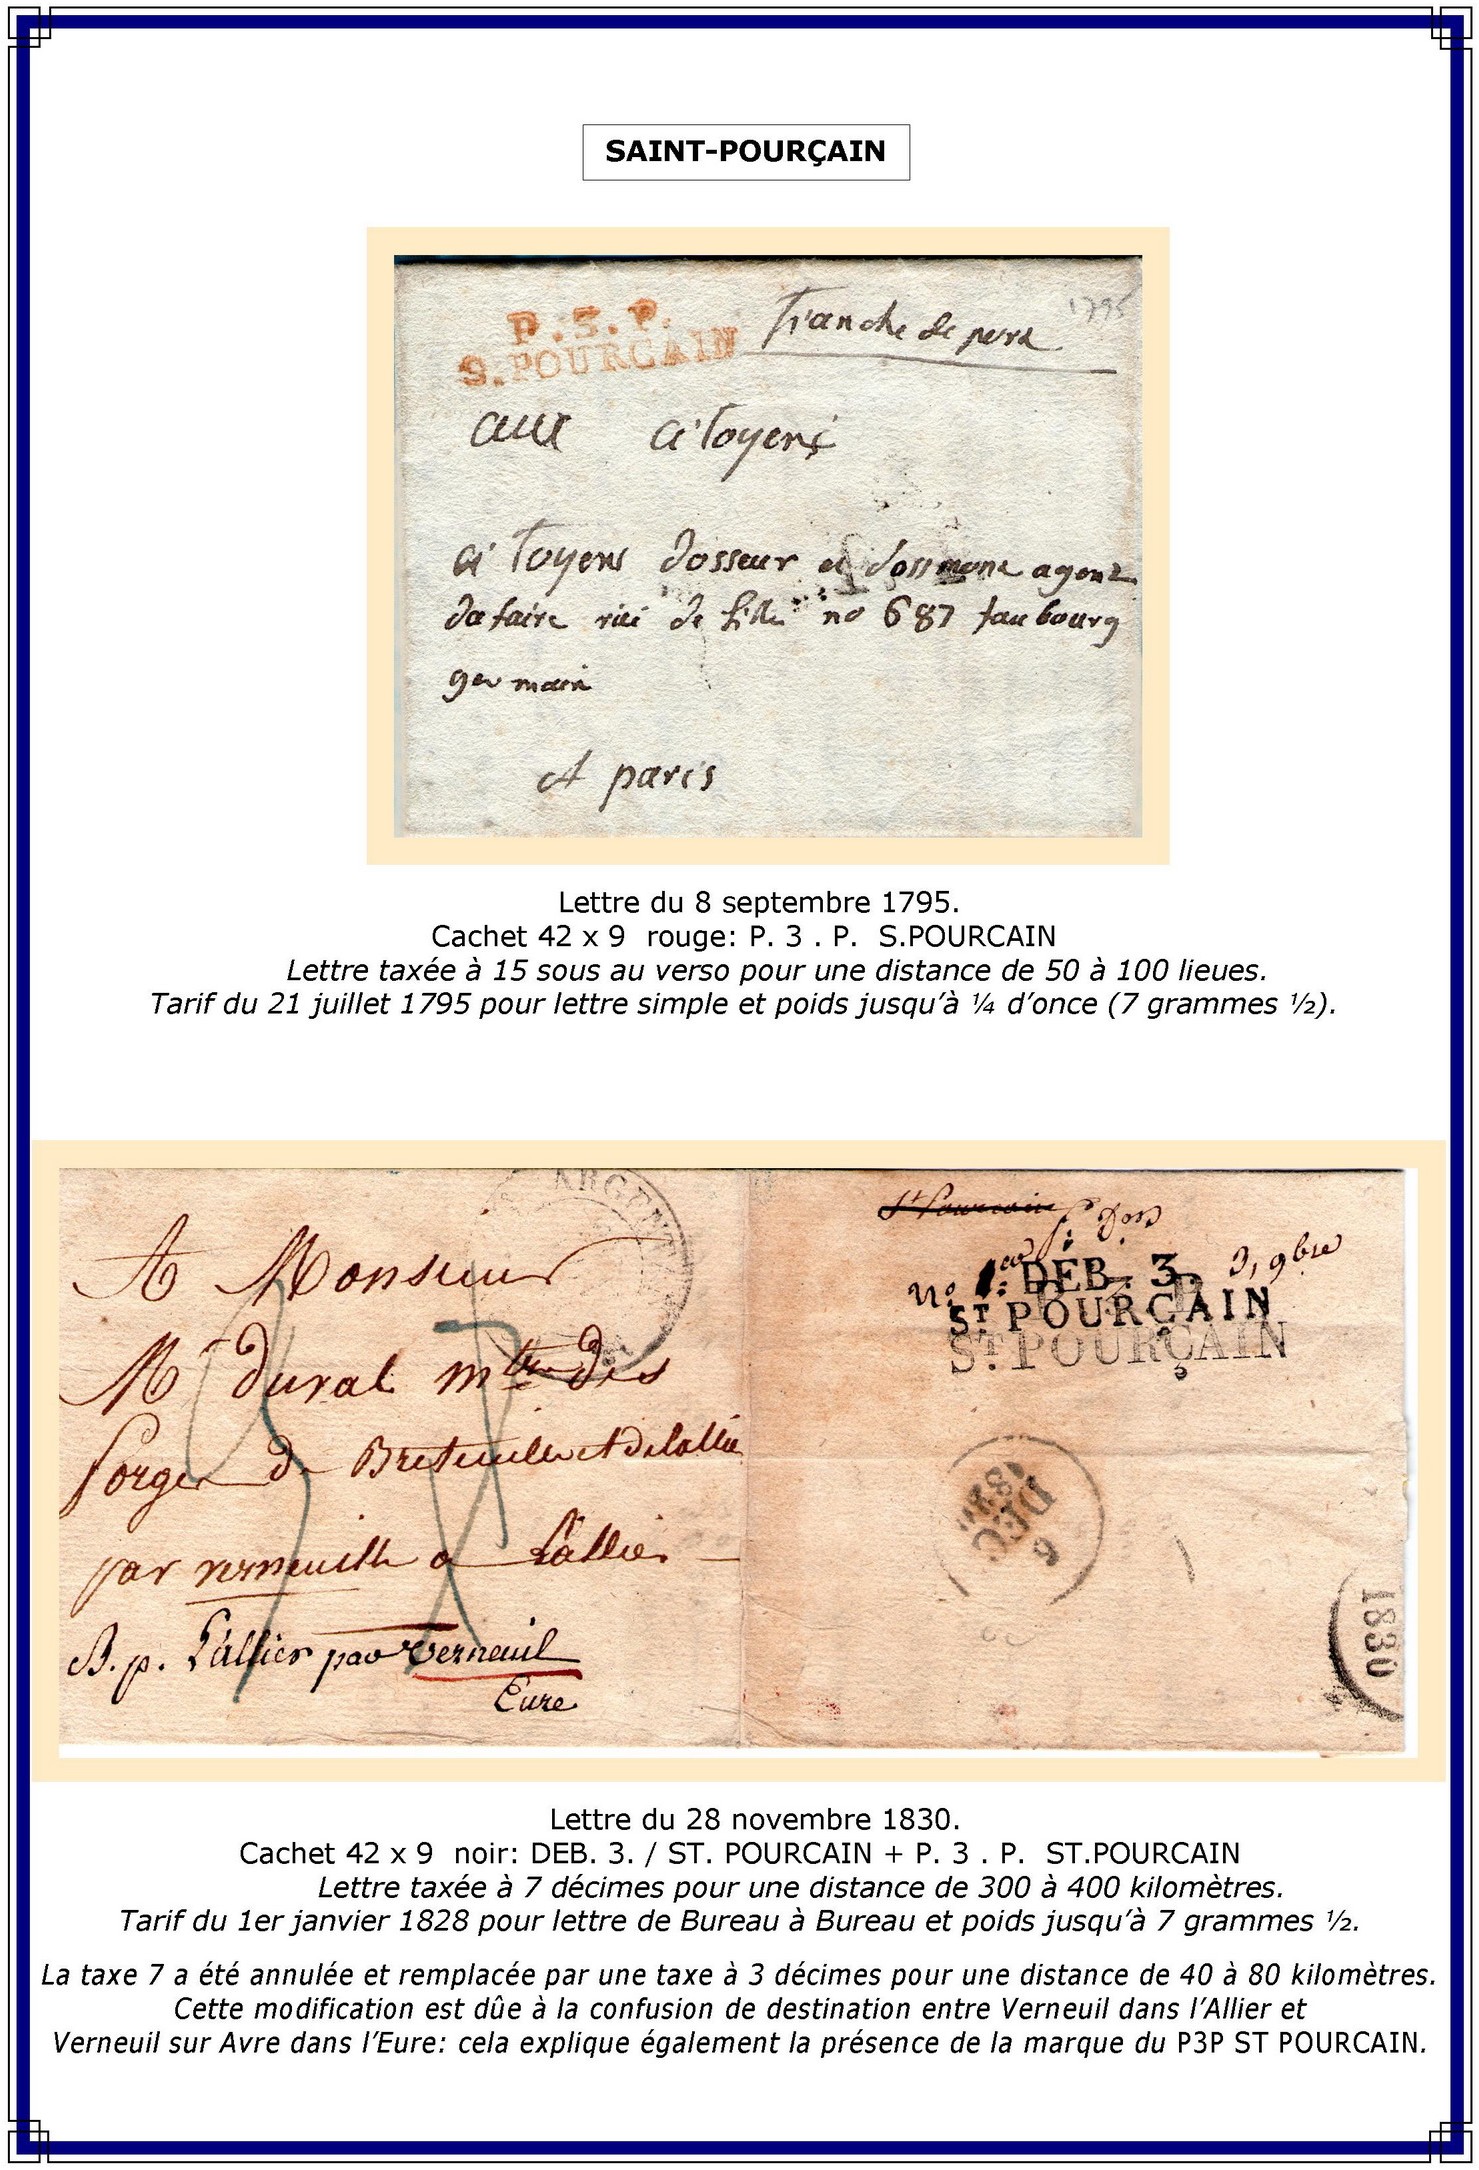 SAINT-POURÇAIN
P.3.P.
S.POURCAIN
franche de port
1795
aux citoyens
citoyens dosseur et dossmone agent
dafaire rue de lille no 687 faubourg
germain
A paris
Lettre du 8 septembre 1795.
Cachet 42 x 9 rouge: P. 3 . P. S.POURCAIN
Lettre taxée à 15 sous au verso pour une distance de 50 à 100 lieues.
Tarif du 21 juillet 1795 pour lettre simple et poids jusqu’à ¼ d’once (7 grammes ½).
ARGENTAN
A Monsieur
Mr duval mtre des
forges de Breteuille et delallie
par verneuille a Lallier
B. p. L'allier par Verneuil
Eure
St Pourcain
DEB. 3.
ST POURÇAIN
P. 3. P.
ST. POURÇAIN
3, 9bre
6
DEC
1830
Lettre du 28 novembre 1830.
Cachet 42 x 9 noir: DEB. 3. / ST. POURCAIN + P. 3 . P. ST.POURCAIN
Lettre taxée à 7 décimes pour une distance de 300 à 400 kilomètres.
Tarif du 1er janvier 1828 pour lettre de Bureau à Bureau et poids jusqu’à 7 grammes ½.
La taxe 7 a été annulée et remplacée par une taxe à 3 décimes pour une distance de 40 à 80 kilomètres.
Cette modification est dûe à la confusion de destination entre Verneuil dans l’Allier et
Verneuil sur Avre dans l’Eure: cela explique également la présence de la marque du P3P ST POURCAIN.